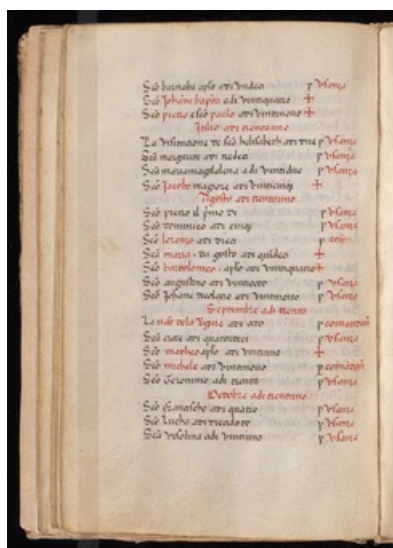 Scō barnaba aplo adi undeci p usanza
Scō Johāne baptā adi vintiquatro ✝
Scō pietro e scō paulo adi vintinove ✝
Julio adi trentauno
La visitatione de scā helisabeth adi due p usanza
Scā margarita adi tredeci p usanza
Scā mariamagdalena adi vintidue p usanza
Scō Jacobo magiore adi vinticinq ✝
Agosto adi trentauno
Scō pietro il primo di p usanza
Scō dominico adi cinq p usanza
Scō lorenzo adi dieci p
Scā maria da gosto adi quīdeci ✝
Scō bartolomeo aplo adi vintiquatro ✝
Scō augustino adi vintiotto p usanza
Scō Johane adi vintinove p usanza
Septembre adi trenta
La de la vgine adi otto p
Scā adi quatordeci p usanza
Scō matheo aplo adi vintiuno ✝
Scō michele adi vintinove p
Scō Geronimo adi trenta p usanza
Octobre adi trentauno
Scō francescho adi quatro p usanza
Scō lucha adi diecidotto p usanza
Scā ursolina adi vintiuno p usanza